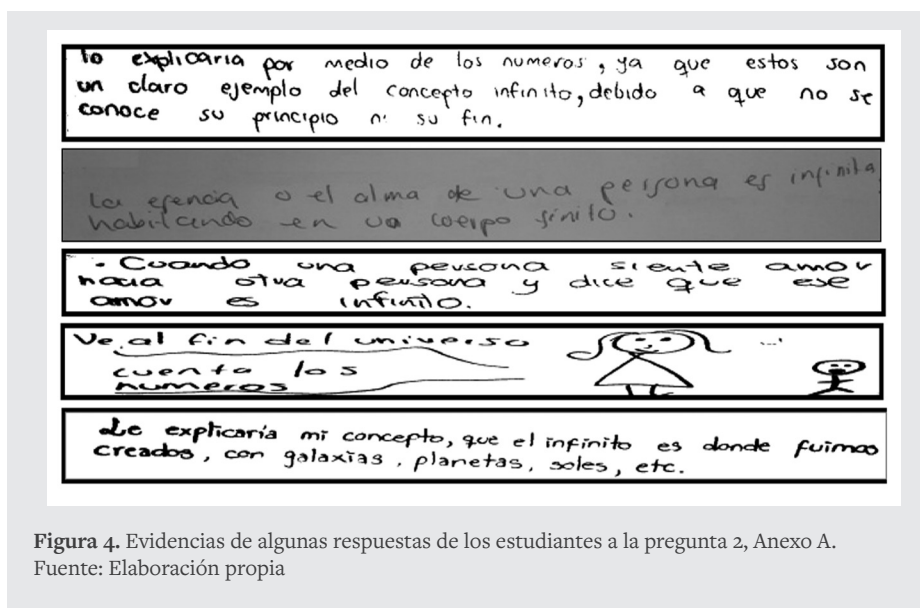 lo explicaria por medio de los numeros, ya que estos son
un claro ejemplo del concepto infinito, debido a que no se
conoce su principio ni su fin.
La esencia o el alma de una persona es infinita
habitando en un cuerpo finito.
- Cuando una persona siente amor
hacia otra persona y dice que ese
amor es infinito.
Ve al fin del universo
cuenta los
numeros
...
Le explicaría mi concepto, que el infinito es donde fuimos
creados, con galaxias, planetas, soles, etc.
Figura 4. Evidencias de algunas respuestas de los estudiantes a la pregunta 2, Anexo A.
Fuente: Elaboración propia